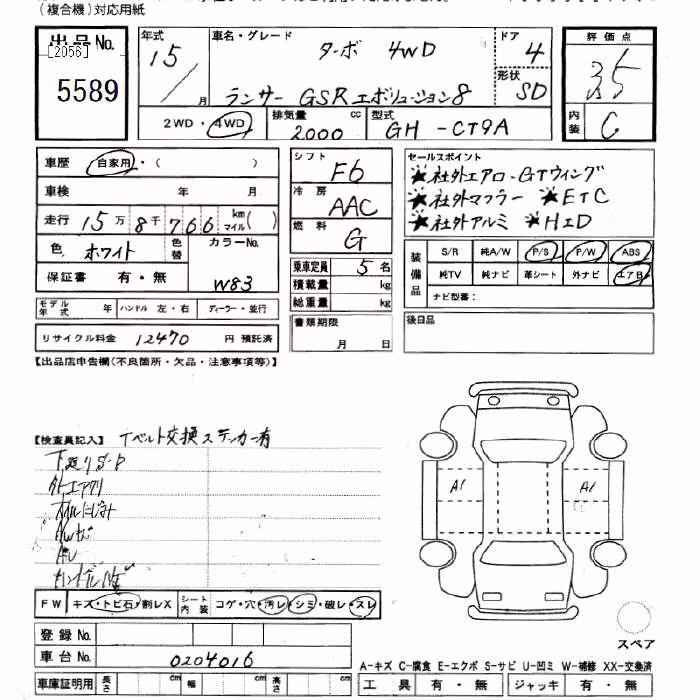 (複合機)対応用紙
出品No.
[2056]
5589
年式
15/月
車名・グレード
ターボ 4WD
ランサー GSRエボリューション8
ドア
4
形状
SD
評価点
3.5
内装
C
2WD・4WD
排気量
2000 cc
型式
GH-CT9A
車歴
自家用・( )
車検 年 月
走行 15万8千766 km マイル( )
色 ホワイト
色替
カラーNo.
W83
保証書 有・無
モデル年式 年
ハンドル 左・右
ディーラー・並行
リサイクル料金 12470 円 預託済
シフト
F6
冷房
AAC
燃料
G
乗車定員 5名
積載量 kg
総重量 kg
書類期限
月 日
セールスポイント
★社外エアロ・GTウィング
★社外マフラー ★ETC
★社外アルミ ★HID
装備品
S/R 純A/W P/S P/W ABS
純TV 純ナビ 革シート 外ナビ エアB
ナビ型番:
後日品
【出品店申告欄(不良箇所・欠品・注意事項等)】
【検査員記入】 Tベルト交換ステッカー有
下廻りS-P
オイルにじみ
AWキズ
FW キズ・トビ石・割レX
シート内装 コゲ・穴・汚レ・シミ・破レ・スレ
登録No.
車台No. 0204016
車庫証明用 長さ cm 幅 cm 高さ cm
A1
A1
スペア
A-キズ C-腐食 E-エクボ S-サビ U-凹ミ W-補修 XX-交換済
工具 有・無 ジャッキ 有・無